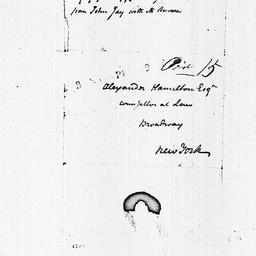 from John Jay with the Answer
Paid 15
Alexander Hamilton Esqr
Counsellor at Law
Broadway
New York